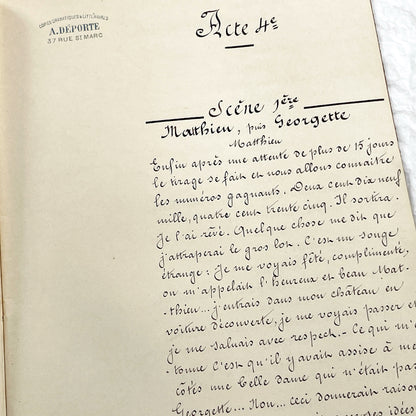 COPIES DRAMATIQUES & LITTÉRAIRES
A. DÉPORTE
37 RUE ST MARC
Acte 4e
Scène 1ère
Matthieu, puis Georgette
Matthieu
Enfin après une attente de plus de 15 jours
le tirage se fait et nous allons connaître
les numéros gagnants. Deux cent dix neuf
mille, quatre cent trente cinq. Il sortira.
Je l'ai rêvé. Quelque chose me dit que
j'attraperai le gros lot. C'est un songe
étrange : je me voyais fêté, complimenté,
on m'appelait l'heureux et beau Mat-
thieu... j'entrais dans mon château en
voiture découverte, je me voyais passer et
je me saluais avec respect. Ce qui m'é
tonne c'est qu'il y avait assise à me
côtés une belle dame qui n'était pas
Georgette... Non... ceci donnerait raison
ses idées